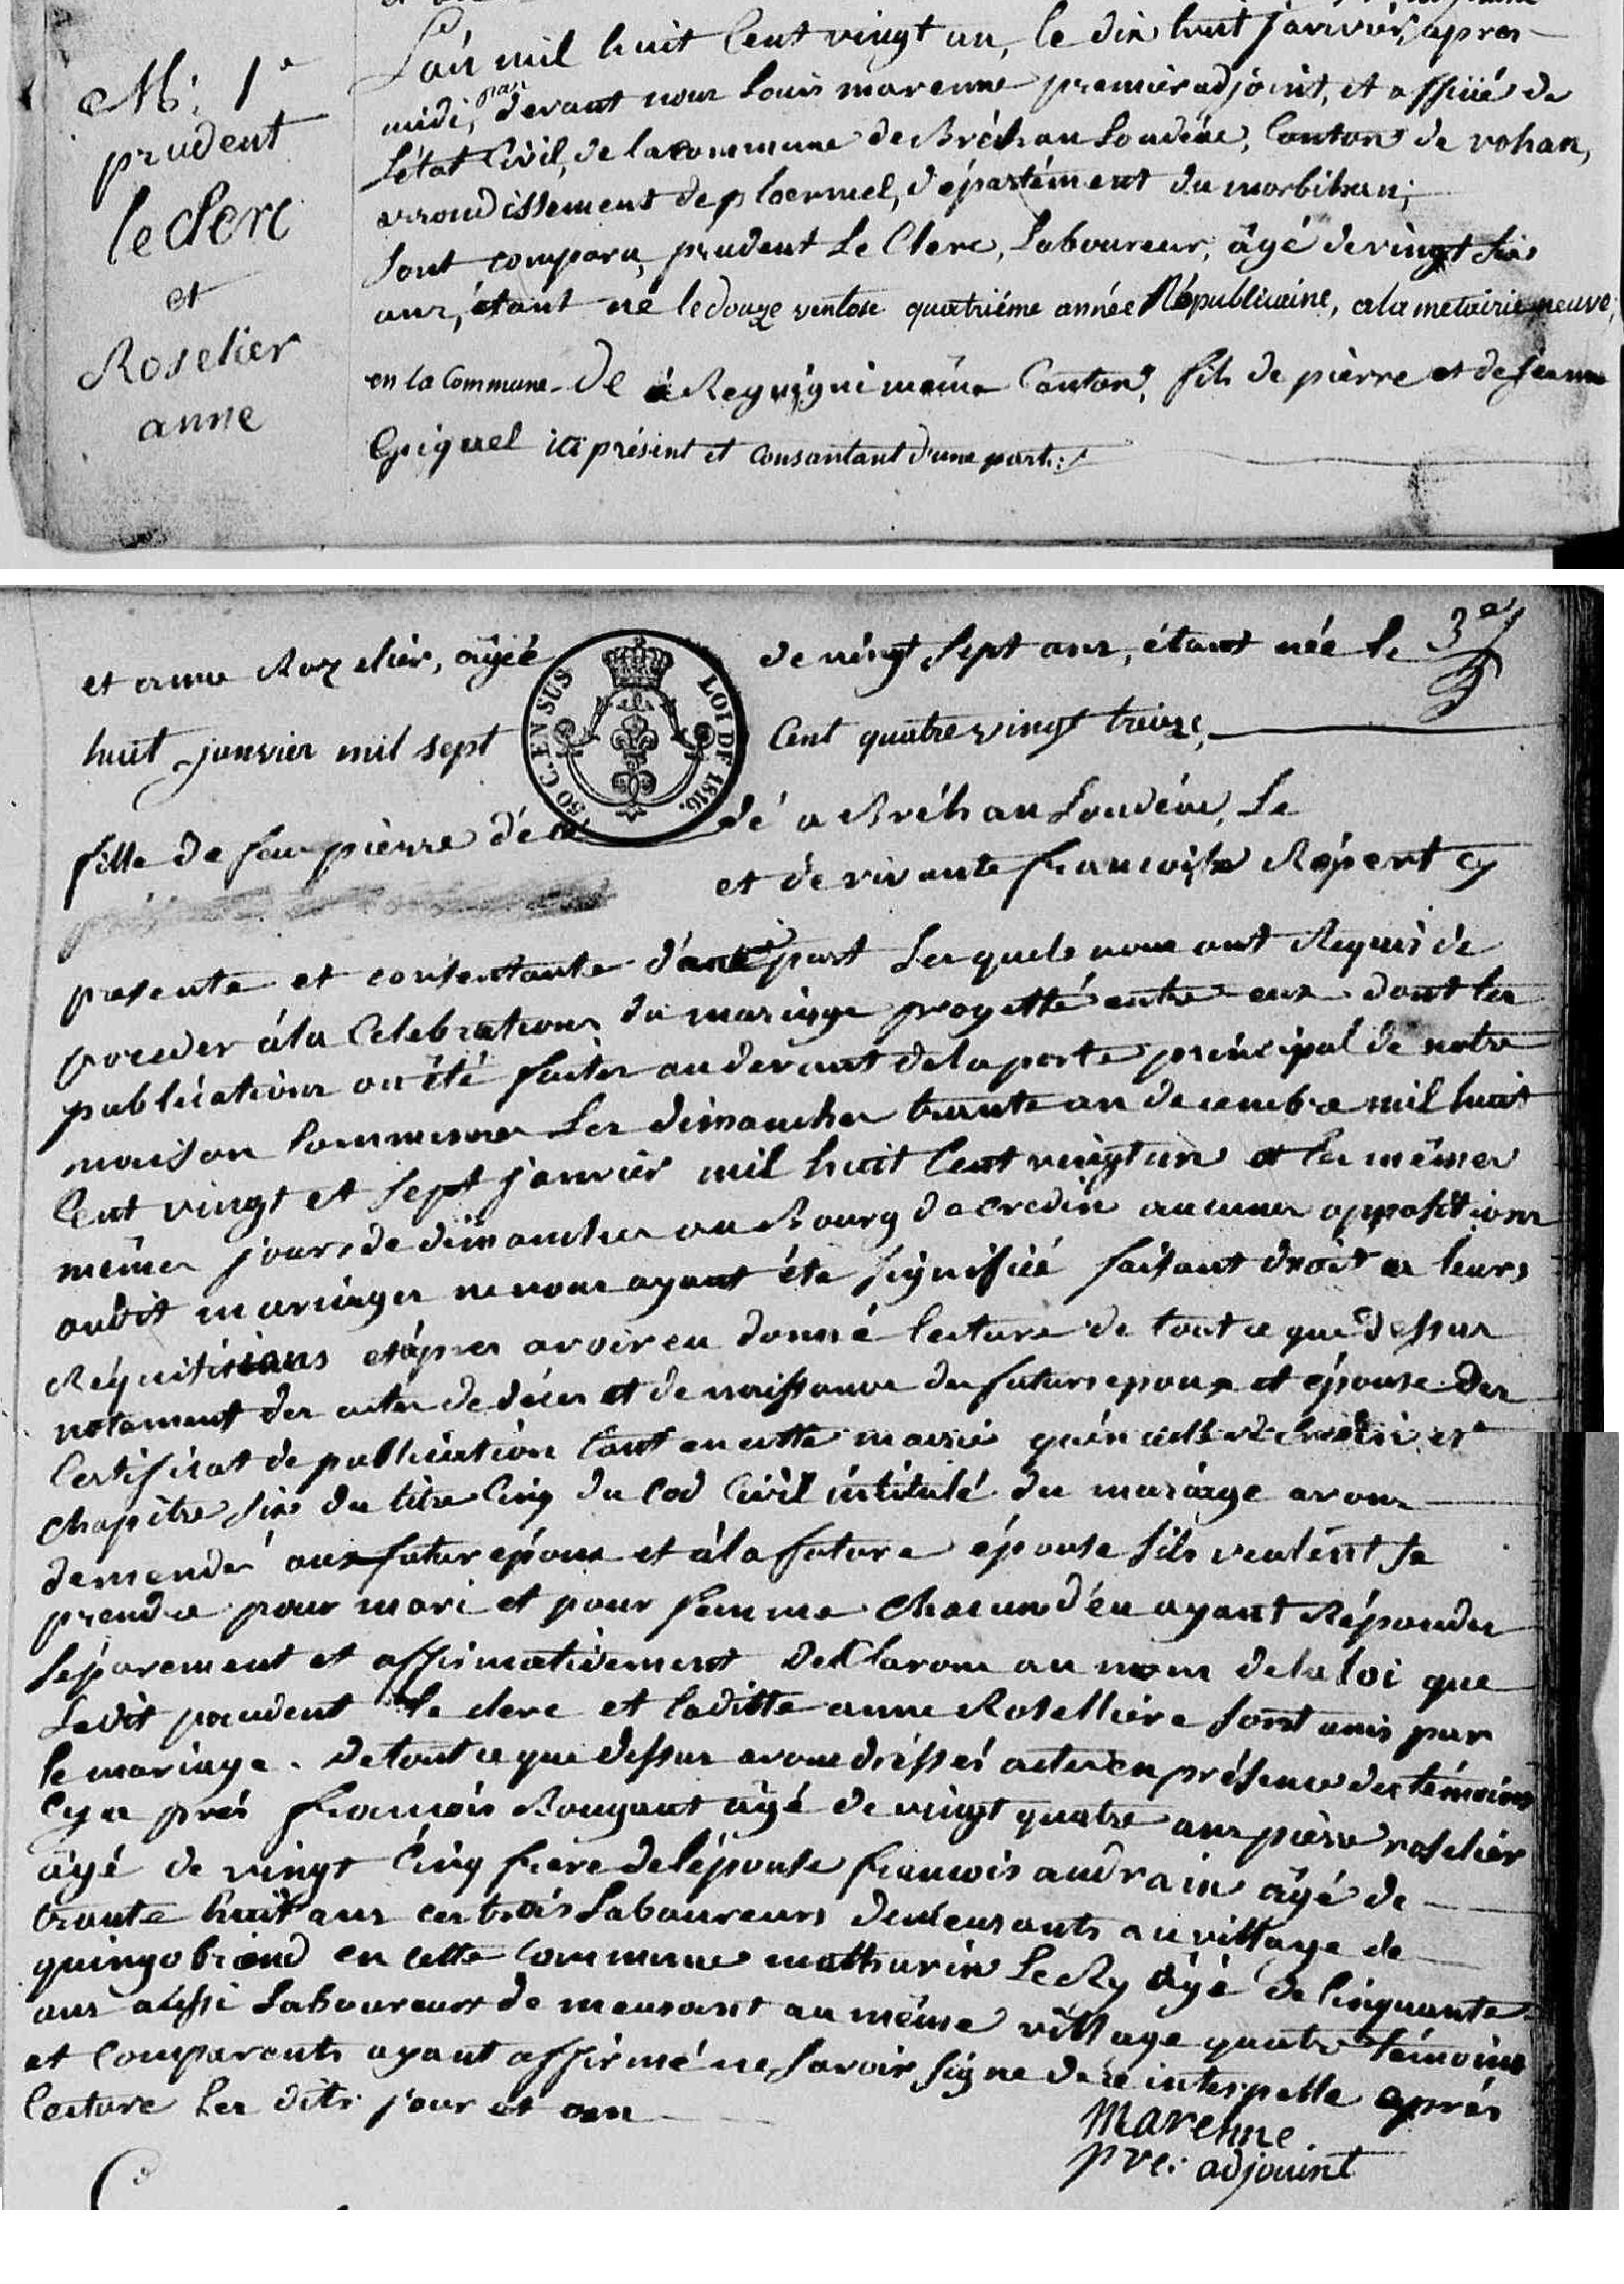 M. 1e
prudent
leclerc
et
Roselier
anne
L'an mil huit Cent vingt un, le dix huit janvier, apres
midi, par devant nous Louis marenne premier adjoint, et officié de
L'état Civil, de la commune de Bréhan Loudéac, Canton de rohan,
arrondissement de ploermel, département du morbihan;
Sont comparu, prudent Le Clerc, Laboureur, âgé de vingt six
ans, étant né le douze ventose quatriéme année Républicaine, a la metairie neuve,
en la Commune de à Reguigni même Canton, fils de pièrre et de jeanne
Guiguel ici présent et Consantant d'une part.
et anne Rozelier, âgéé de vingt sept ans, étant née le 3e
huit janvier mil sept Cent quatre vingt treize,
30 C. EN SUS LOI DE 1816.
fille de feu pièrre décédé a Bréhan Loudéac, Le
et de vivante francoise Répert cy
presente et consentante d'autre part Lesquels nous ont Requis de
proceder à la Celebration du mariage progetté entre eux dont les
publications on été faites au devant de la porte principal de notre
maison Commune Les dimanches trante un decembre mil huit
Cent vingt et sept janvier mil huit Cent vingt un et les mêmes
mêmes jours de dimanches au Bourg de credin aucunes oppositions
au dit mariages ne nous ayant été signifiéé faisant droit a leurs
Réquisitions et àpres avoir eu donné lecture de tout ce que dessus
notament des actes de déces et de naissance des futurs epoux et épouse des
Certificat de publication tant en cette mairie qu'en celle de Credin et
chapitre six du titre Cinq du Cod Civil intitulé du mariage avons
demendé aux futur epoux et à la future épouse s'ils veulent se
prendre pour mari et pour femme chacun d'eu ayant Répondu
séparement et affirmativement declarons au nom de la loi que
Ledit prudent le clerc et laditte anne Rosellière sont unis par
le mariage. De tout ce que dessus avons dréssés acte en présence des témoins
Cy a prés françois Rougant âgé de vingt quatre ans pièrre roselier
âgé de vingt Cinq frere de l'épouse francois audrain âgé de
trante huit ans ces trois Laboureurs demeurants au village de
quingo briend en cette Commune mathurin Le Ry âgé de Cinquante
ans aussi Laboureur demeurant au même village quatre témoins
et Comparants ayant affirmé ne savoir signe de ce interpelle aprés
lecture Les dits jour et an
marenne
pre: adjouint